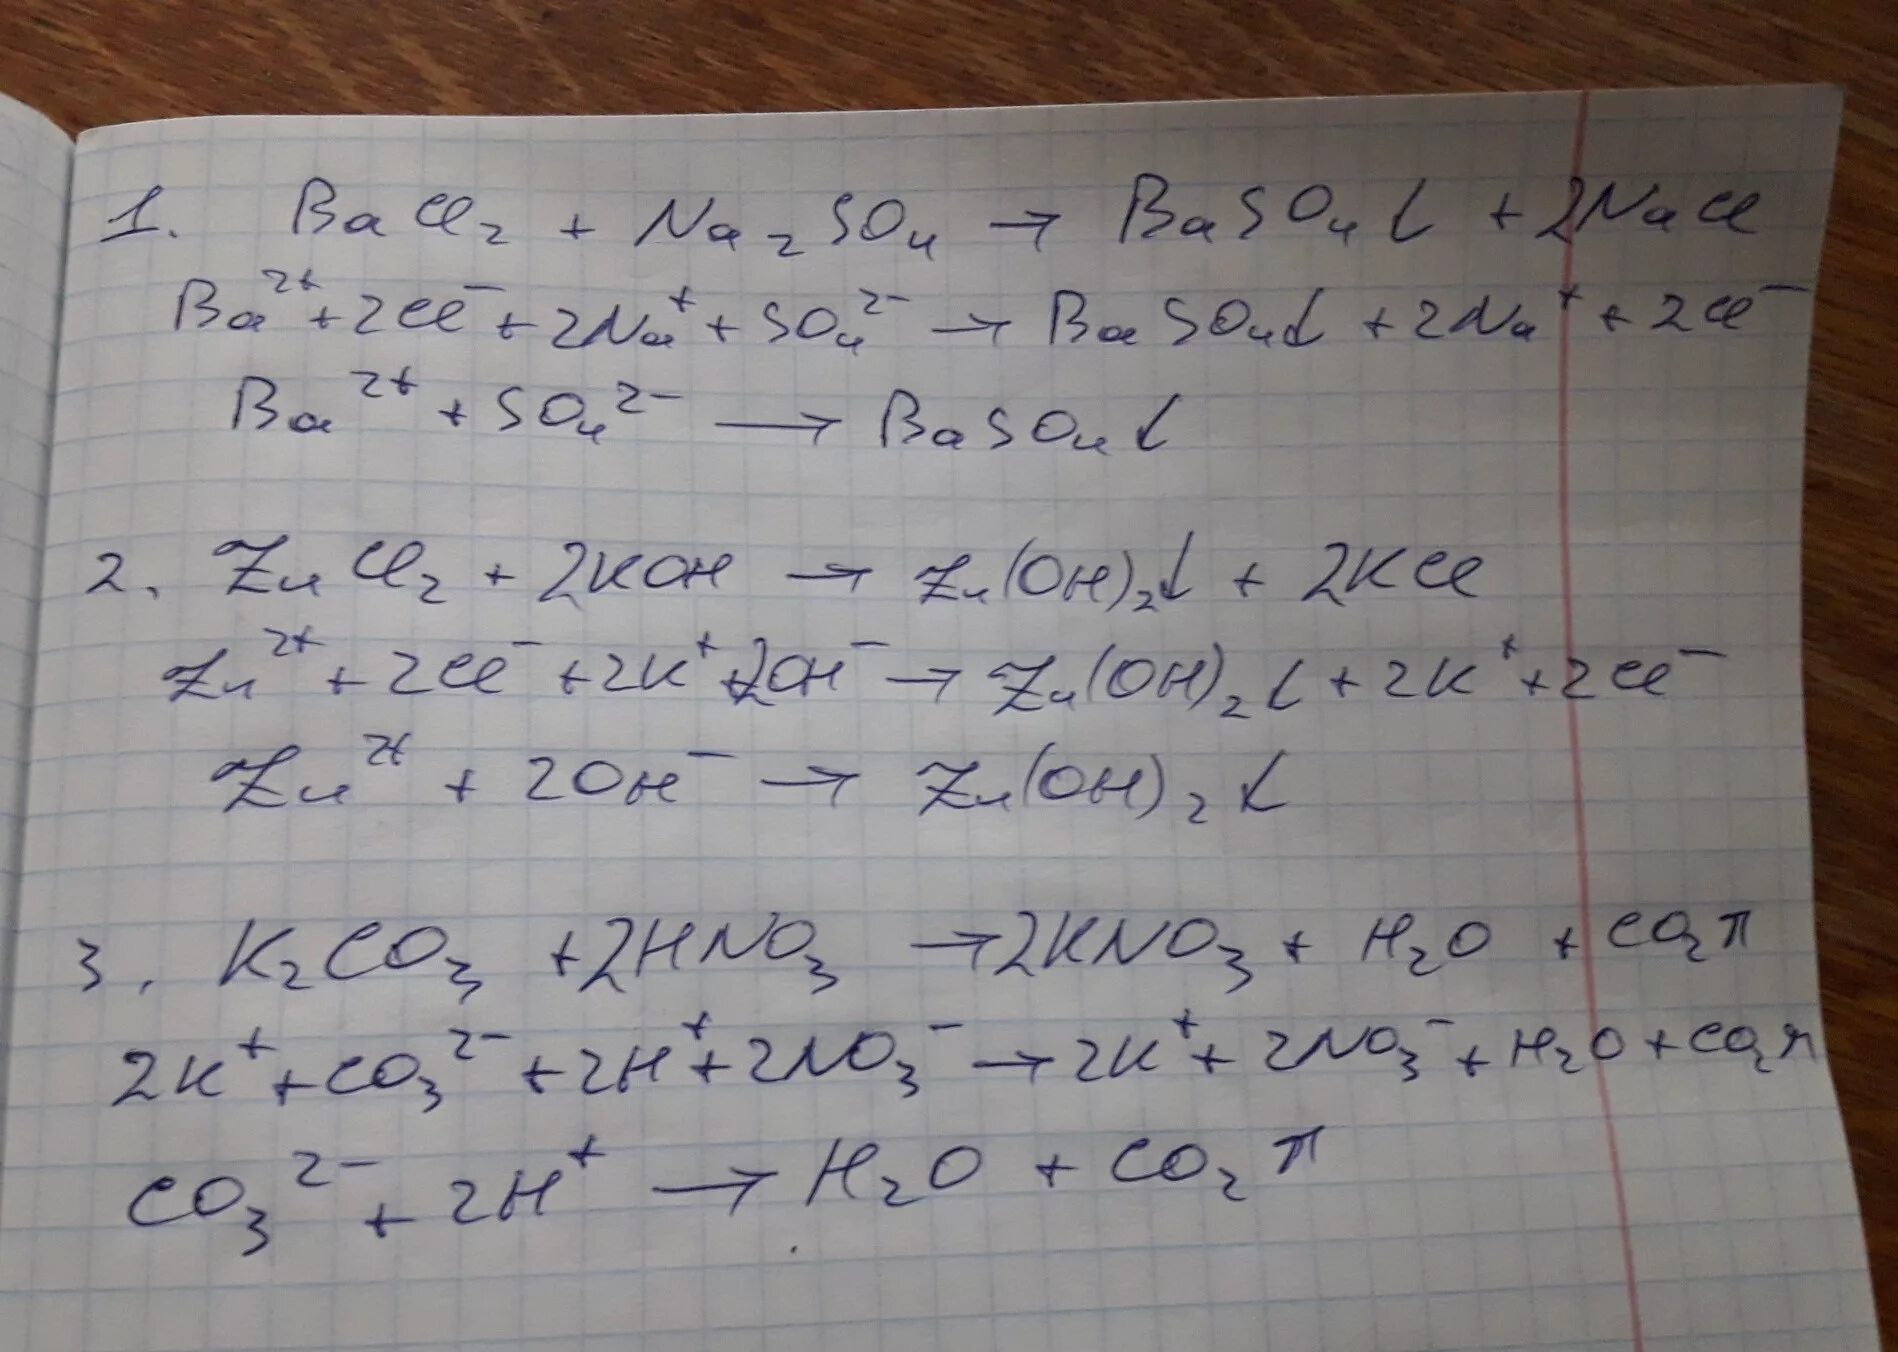 1. BaCl₂ + Na₂SO₄ → BaSO₄↓ + 2NaCl
Ba²⁺ + 2Cl⁻ + 2Na⁺ + SO₄²⁻ → BaSO₄↓ + 2Na⁺ + 2Cl⁻
Ba²⁺ + SO₄²⁻ → BaSO₄↓
2. ZnCl₂ + 2KOH → Zn(OH)₂↓ + 2KCl
Zn²⁺ + 2Cl⁻ + 2K⁺ + 2OH⁻ → Zn(OH)₂↓ + 2K⁺ + 2Cl⁻
Zn²⁺ + 2OH⁻ → Zn(OH)₂↓
3. K₂CO₃ + 2HNO₃ → 2KNO₃ + H₂O + CO₂↑
2K⁺ + CO₃²⁻ + 2H⁺ + 2NO₃⁻ → 2K⁺ + 2NO₃⁻ + H₂O + CO₂↑
CO₃²⁻ + 2H⁺ → H₂O + CO₂↑